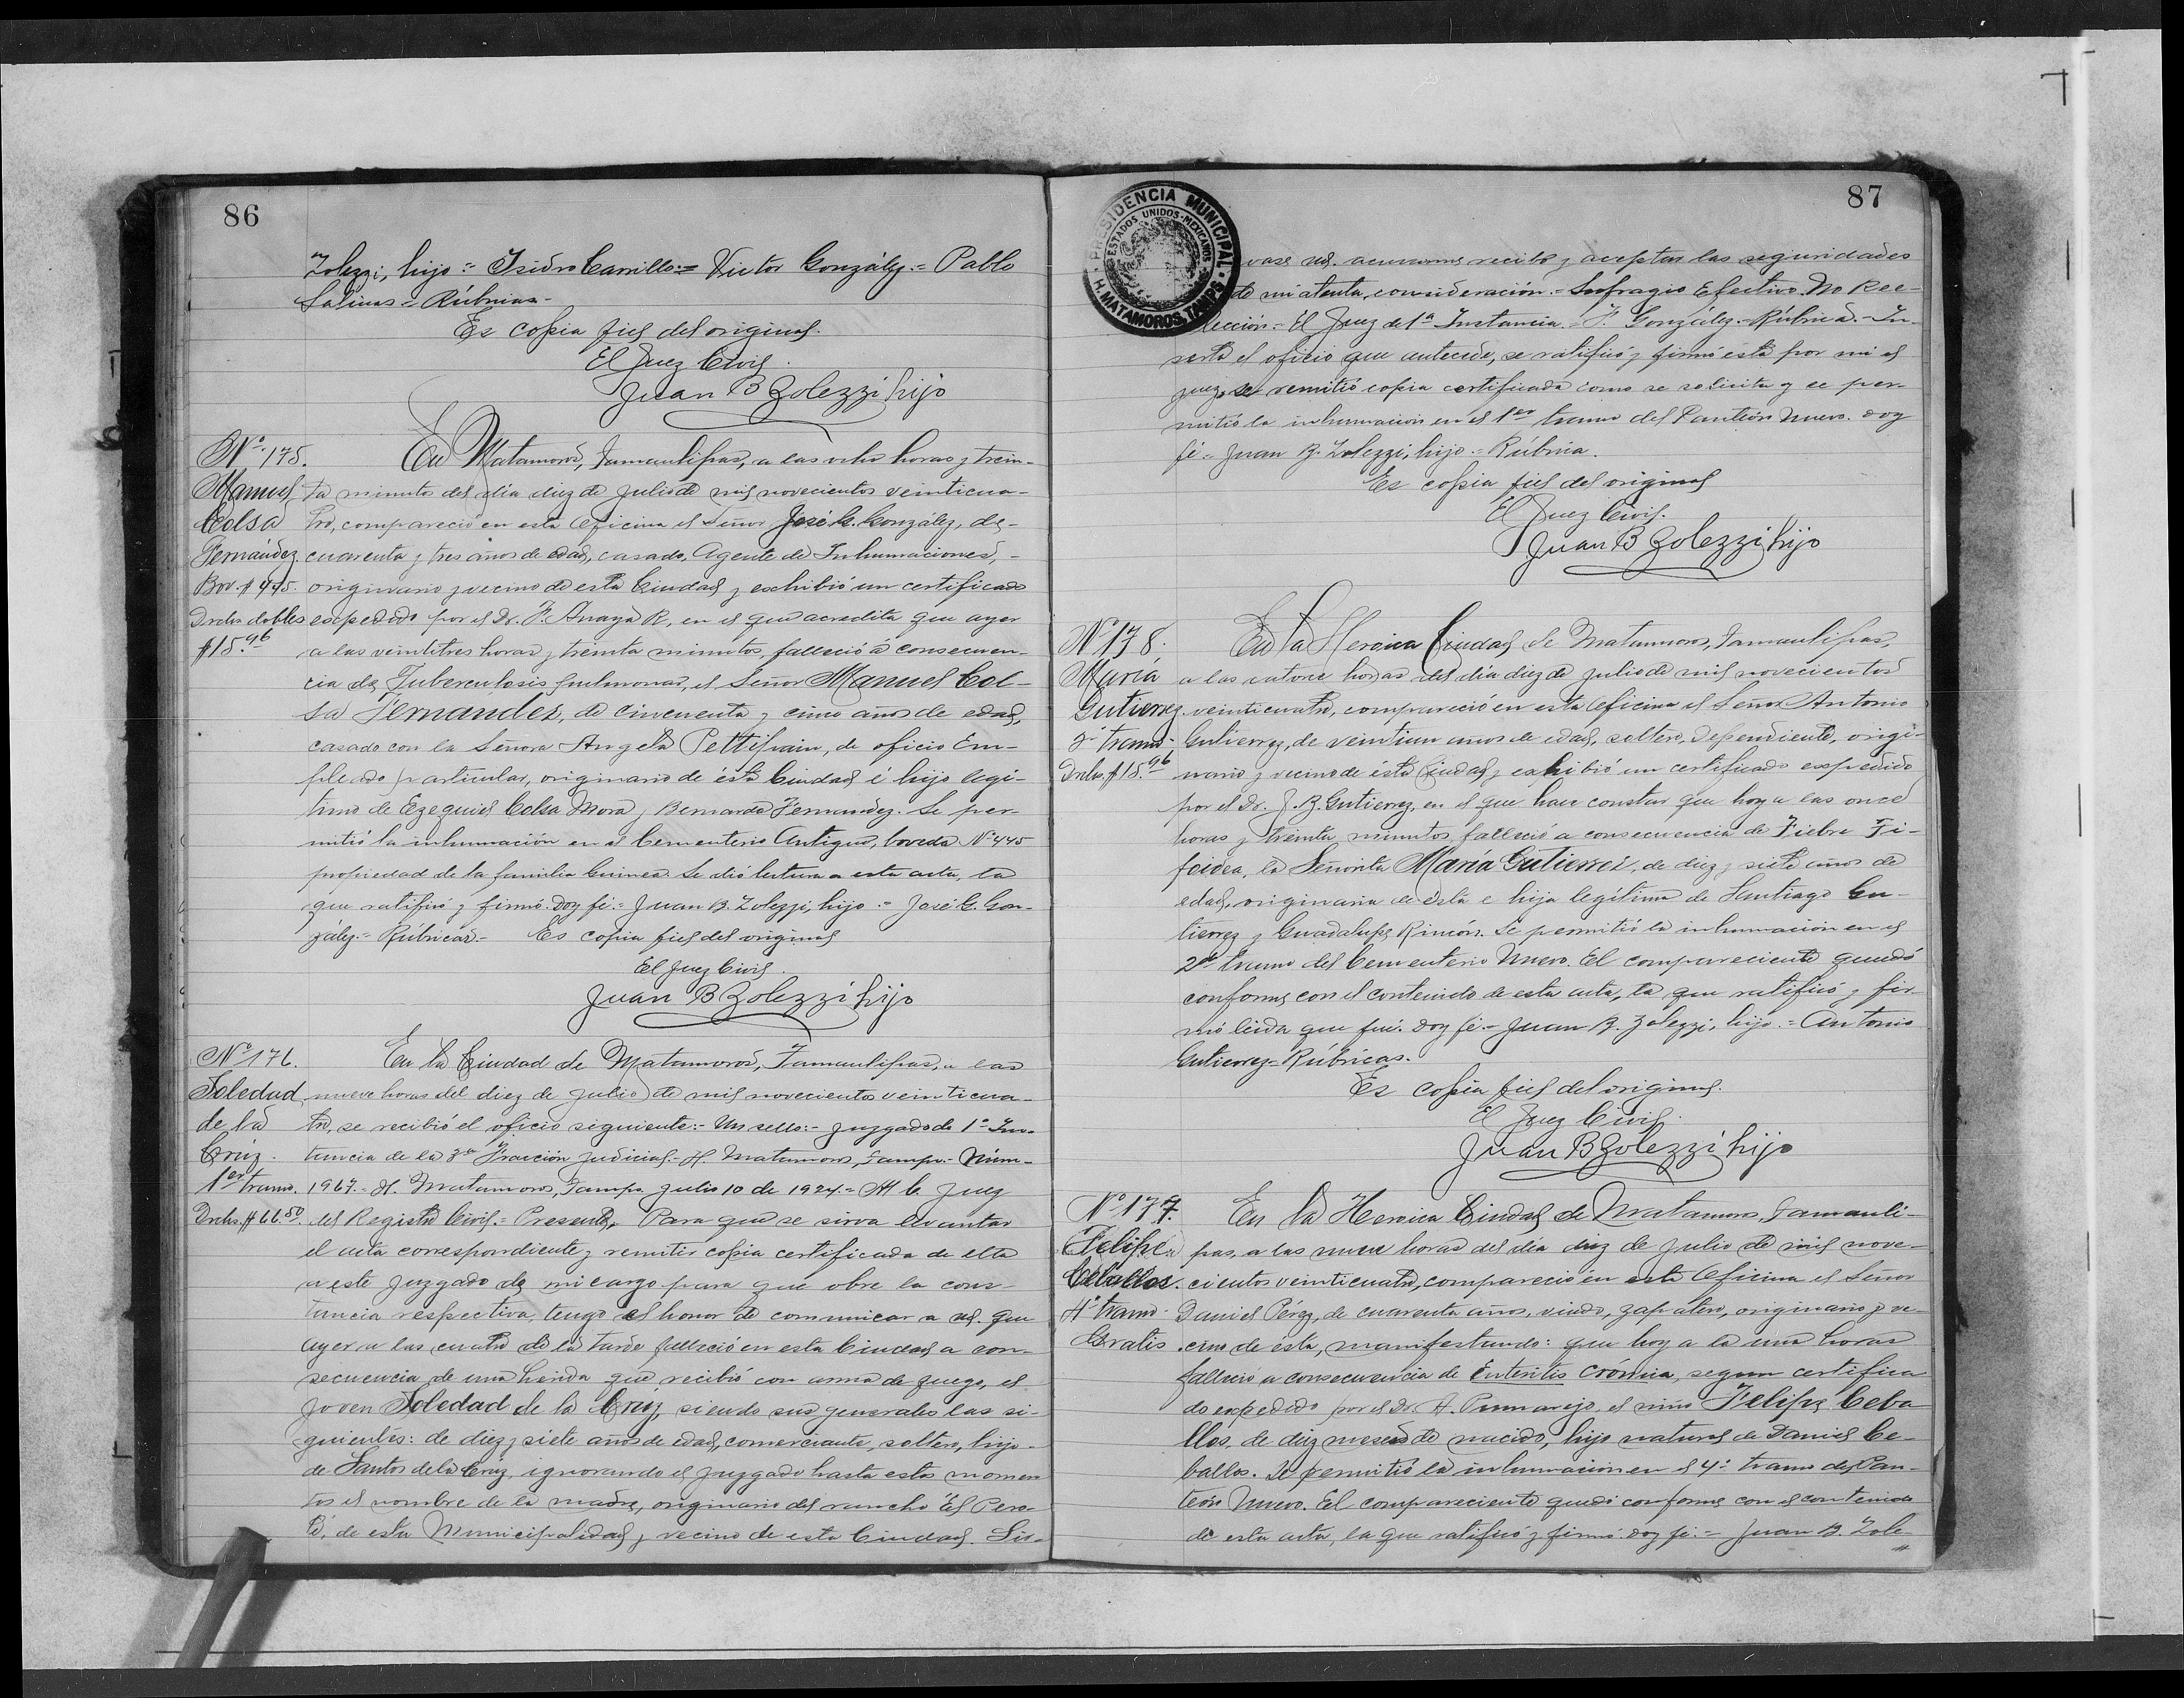 86
Zolezzi, hijo = Isidro Carrillo = Victor González = Pablo
Salinas = Rúbricas -
Es copia fiel del original.
El Juez Civil.
Juan B Zolezzi hijo
Nº 175.
Manuel
Colsa
Fernández
Bov. # 445.
Drchs. dobles
$15.96
En Matamoros, Tamaulipas, a las ocho horas y trein-
ta minutos del día diez de julio de mil novecientos veinticua-
tro, compareció en esta Oficina el Señor José G. González, de -
cuarenta y tres años de edad, casado, Agente de Inhumaciones, -
originario y vecino de esta Ciudad y exhibió un certificado
expedido por el Dr. F. Anaya R, en el que acredita que ayer
a las veintitres horas y treinta minutos, falleció á consecuen-
cia de Tuberculosis pulmonar, el Señor Manuel Col-
sa Fernandez, de cincuenta y cinco años de edad,
casado con la Señora Angela Pettipain, de oficio Em-
pleado particular, originario de ésta Ciudad é hijo legi-
timo de Ezequiel Colsa Mora y Bernarda Fernandez. Se per-
mitió la inhumación en el Cementerio Antiguo, boveda Nº 445
propiedad de la familia . Se dió lectura a esta acta, la
que ratificó y firmó. Doy fé. = Juan B. Zolezzi, hijo. = José G. Gon-
zález. = Rúbricas. - Es copia fiel del original
El Juez Civil.
Juan B Zolezzi hijo
Nº 176.
Soledad
de la
Cruz.
1er tramo.
Drchs. $66.50
En la Ciudad de Matamoros, Tamaulipas, a las
nueve horas del diez de julio de mil novecientos veinticua-
tro, se recibió el oficio siguiente: - Un sello: - Juzgado de 1ª Ins-
tancia de la 3ª Fracción Judicial. - H. Matamoros, Tamps. - Núm -
1967. - H. Matamoros, Tamps. julio 10 de 1924. = Al C. Juez
del Registro Civil. = Presente. Para que se sirva levantar
el acta correspondiente y remitir copia certificada de ella
a este Juzgado de mi cargo para que obre la cons-
tancia respectiva, tengo el honor de comunicar a ud. que
ayer a las cuatro de la tarde falleció en esta Ciudad a con-
secuencia de una herida que recibió con arma de fuego, el
joven Soledad de la Cruz, siendo sus generales las si-
guientes: de diez y siete años de edad, comerciante, soltero, hijo
de Santos de la Cruz, ignorando el juzgado hasta estos momen
tos el nombre de la madre, originario del rancho "El
de esta Municipalidad y vecino de esta Ciudad. Sir-
87
PRESIDENCIA MUNICIPAL
ESTADOS UNIDOS MEXICANOS
H. MATAMOROS, TAMPS
vase ud. acusarme recibo y aceptar las seguridades
de mi atenta consideración. = Sufragio Efectivo. No Ree-
lección. = El Juez de 1ª Instancia. = F. González. - Rúbrica. - In-
serto el oficio que antecede, se ratificó y firmó esta por mi el
juez, se remitió copia certificada como se solicita y se per-
mitió la inhumación en el 1er tramo del Panteón Nuevo. Doy
fé = Juan B. Zolezzi, hijo. = Rúbrica.
Es copia fiel del original
El Juez Civil.
Juan B Zolezzi hijo
Nº 178.
María
Gutierrez
2º tramo.
Drchs. $15.96
En la Heroica Ciudad de Matamoros, Tamaulipas,
a las catorce horas del día diez de julio de mil novecientos
veinticuatro, compareció en esta Oficina el Señor Antonio
Gutierrez, de veintiun años de edad, soltero, dependiente, origi-
nario y vecino de ésta Ciudad y exhibió un certificado expedido
por el Dr. J. B. Gutierrez, en el que hace constar que hoy a las once
horas y treinta minutos falleció a consecuencia de Fiebre Ti-
foidea, la Señorita María Gutierrez, de diez y siete años de
edad, originaria de ésta e hija legítima de Santiago Gu-
tierrez y Guadalupe Rincón. Se permitió la inhumación en el
2º tramo del Cementerio Nuevo. El compareciente quedó
conforme con el contenido de esta acta, la que ratificó y fir-
mó leida que fué. Doy fé. = Juan B. Zolezzi, hijo. = Antonio
Gutierrez = Rúbricas.
Es copia fiel del original.
El Juez Civil.
Juan B Zolezzi hijo
Nº 177.
Felipe
Ceballos.
4º tramo.
Gratis
En la Heroica Ciudad de Matamoros, Tamauli-
pas, a las nueve horas del día diez de julio de mil nove-
cientos veinticuatro, compareció en esta Oficina el Señor
Daniel Pérez, de cuarenta años, viudo, zapatero, originario y ve-
cino de ésta, manifestando: que hoy a la una horas
falleció a consecuencia de Enteritis Crónica, segun certifica
do expedido por el Dr. A. Pumarejo, el niño Felipe Ceba
llos, de diez meses de nacido, hijo natural de Daniel Ce-
ballos. Se permitió la inhumación en el 4º tramo del Pan-
teón Nuevo. El compareciente quedó conforme con el contenido
de esta acta, la que ratificó y firmó. Doy fé. = Juan B. Zole-